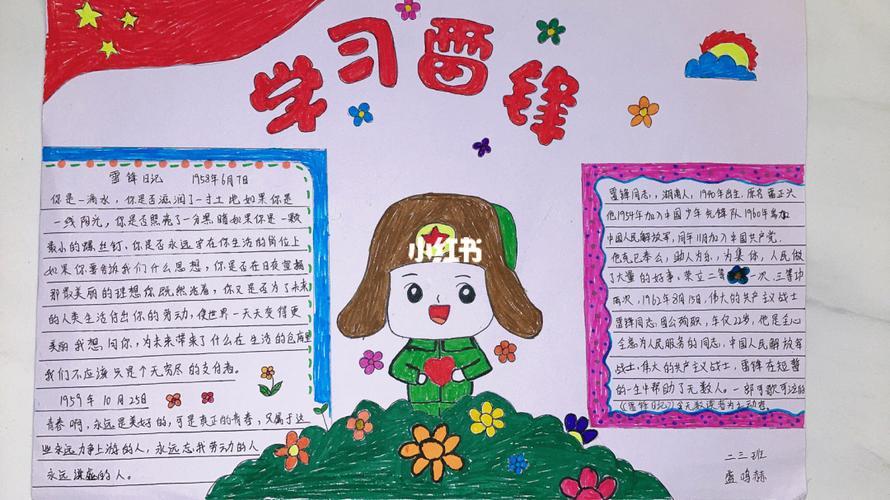 学习雷锋
雷锋日记 1958年6月7日
你是一滴水,你是否滋润了一寸土地如果你是
一线阳光,你是否照亮了一角黑暗如果你是一颗
最小的螺丝钉,你是否永远守在你生活的岗位上
如果你要告诉我们什么思想,你是否在日夜宣扬
那最美丽的理想你既然活着,你又是否为了未来
的人类生活付出你的劳动,使世界一天天变得更
美丽我想问你,为未来带来了什么在生活的仓库里
我们不应该只是个无穷尽的支付者。
1959年10月25日
青春啊,永远是美好的,可是真正的青春,只属于这
些永远力争上游的人,永远忘我劳动的人
永远谦虚的人。
小红书
雷锋同志,湖南人,1940年出生,原名雷正兴
他1954年加入中国少年先锋队1960年参加
中国人民解放军,同年11月加入中国共产党.
他克己奉公,助人为乐,为集体,人民做
了大量的好事,荣立二等 一次,三等功
两次,1962年8月15日,伟大的共产主义战士
雷锋同志因公殉职,年仅22岁,他是全心
全意为人民服务的同志,中国人民解放军
战士,伟大的共产主义战士,雷锋在短暂
的一生中帮助了无数人。一部可歌可泣的
《雷锋日记》令无数读者为之动容。
二三班